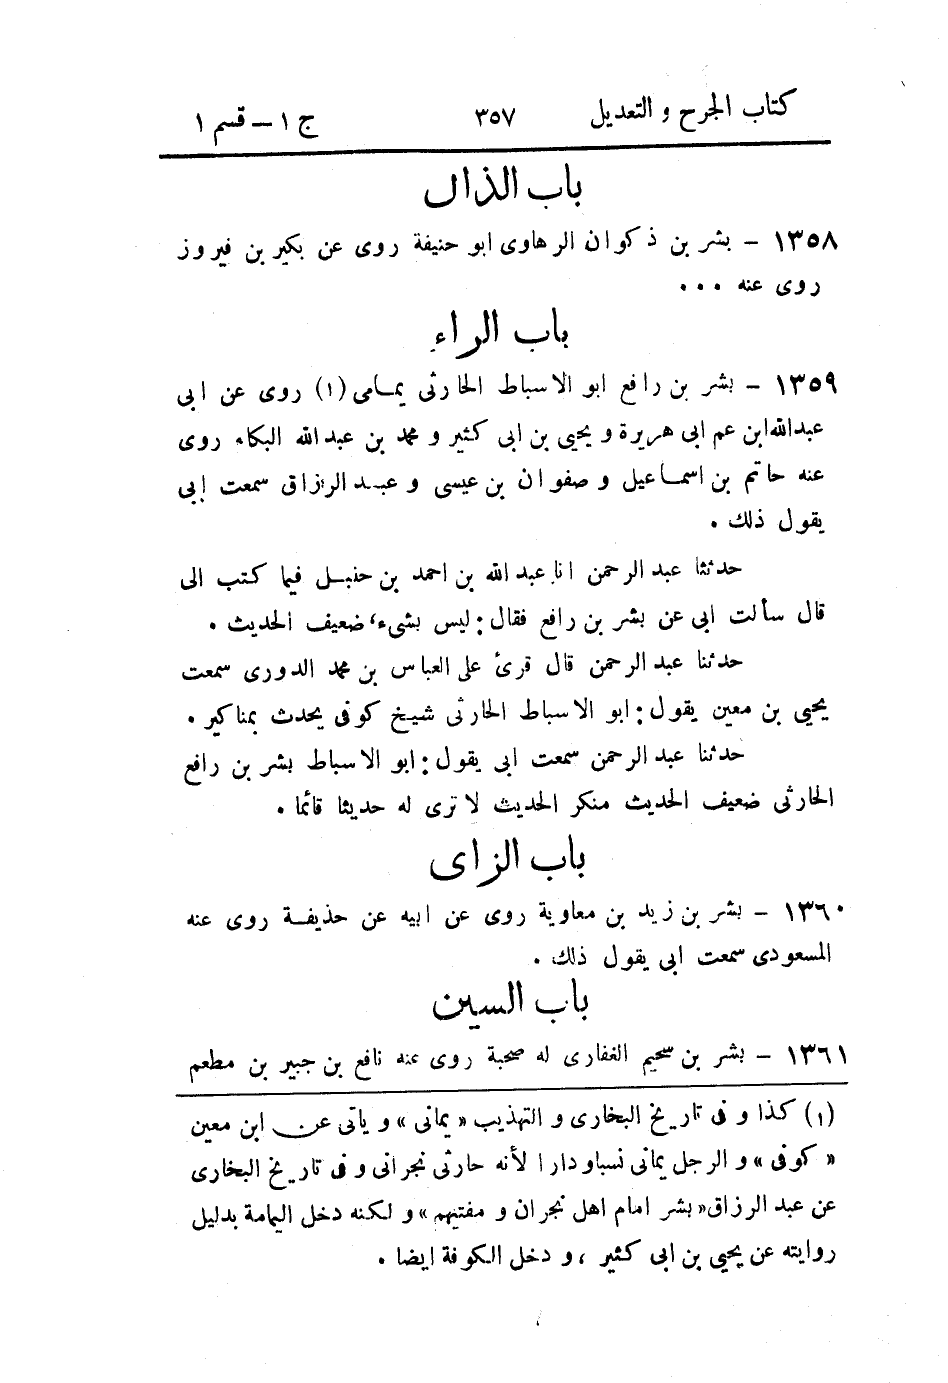 كتاب الجرح و التعديل ٣٥٧ ج ١ – قسم ١
باب الذال
١٣٥٨ – بشر بن ذكوان الرهاوى ابو حنيفة روى عن بكير بن فيروز
روى عنه ٠٠٠
باب الراء
١٣٥٩ – بشر بن رافع ابو الاسباط الحارثى يمامى (١) روى عن ابى
عبدالله ابن عم ابى هريرة و يحيى بن ابى كثير و محمد بن عبد الله البكاء روى
عنه حاتم بن اسماعيل و صفوان بن عيسى و عبد الرزاق سمعت ابى
يقول ذلك ٠
حدثنا عبد الرحمن انا عبد الله بن احمد بن حنبل فيما كتب الى
قال سألت ابى عن بشر بن رافع فقال : ليس بشىء، ضعيف الحديث ٠
حدثنا عبد الرحمن قال قرئ على العباس بن محمد الدورى سمعت
يحيى بن معين يقول : ابو الاسباط الحارثى شيخ كوفى يحدث بمناكير ٠
حدثنا عبد الرحمن سمعت ابى يقول : ابو الاسباط بشر بن رافع
الحارثى ضعيف الحديث منكر الحديث لا ترى له حديثا قائما ٠
باب الزاى
١٣٦٠ – بشر بن زيد بن معاوية روى عن ابيه عن حذيفة روى عنه
المسعودى سمعت ابى يقول ذلك ٠
باب السين
١٣٦١ – بشر بن سحيم الغفارى له صحبة روى عنه نافع بن جبير بن مطعم
(١) كذا و فى تاريخ البخارى و التهذيب « يمانى » و ياتى عن ابن معين
« كوفى » و الرجل يمانى نسبا و دارا لأنه حارثى نجرانى و فى تاريخ البخارى
عن عبد الرزاق « بشر امام اهل نجران و مفتيهم » و لكنه دخل اليمامة بدليل
روايته عن يحيى بن ابى كثير ، و دخل الكوفة ايضا ٠